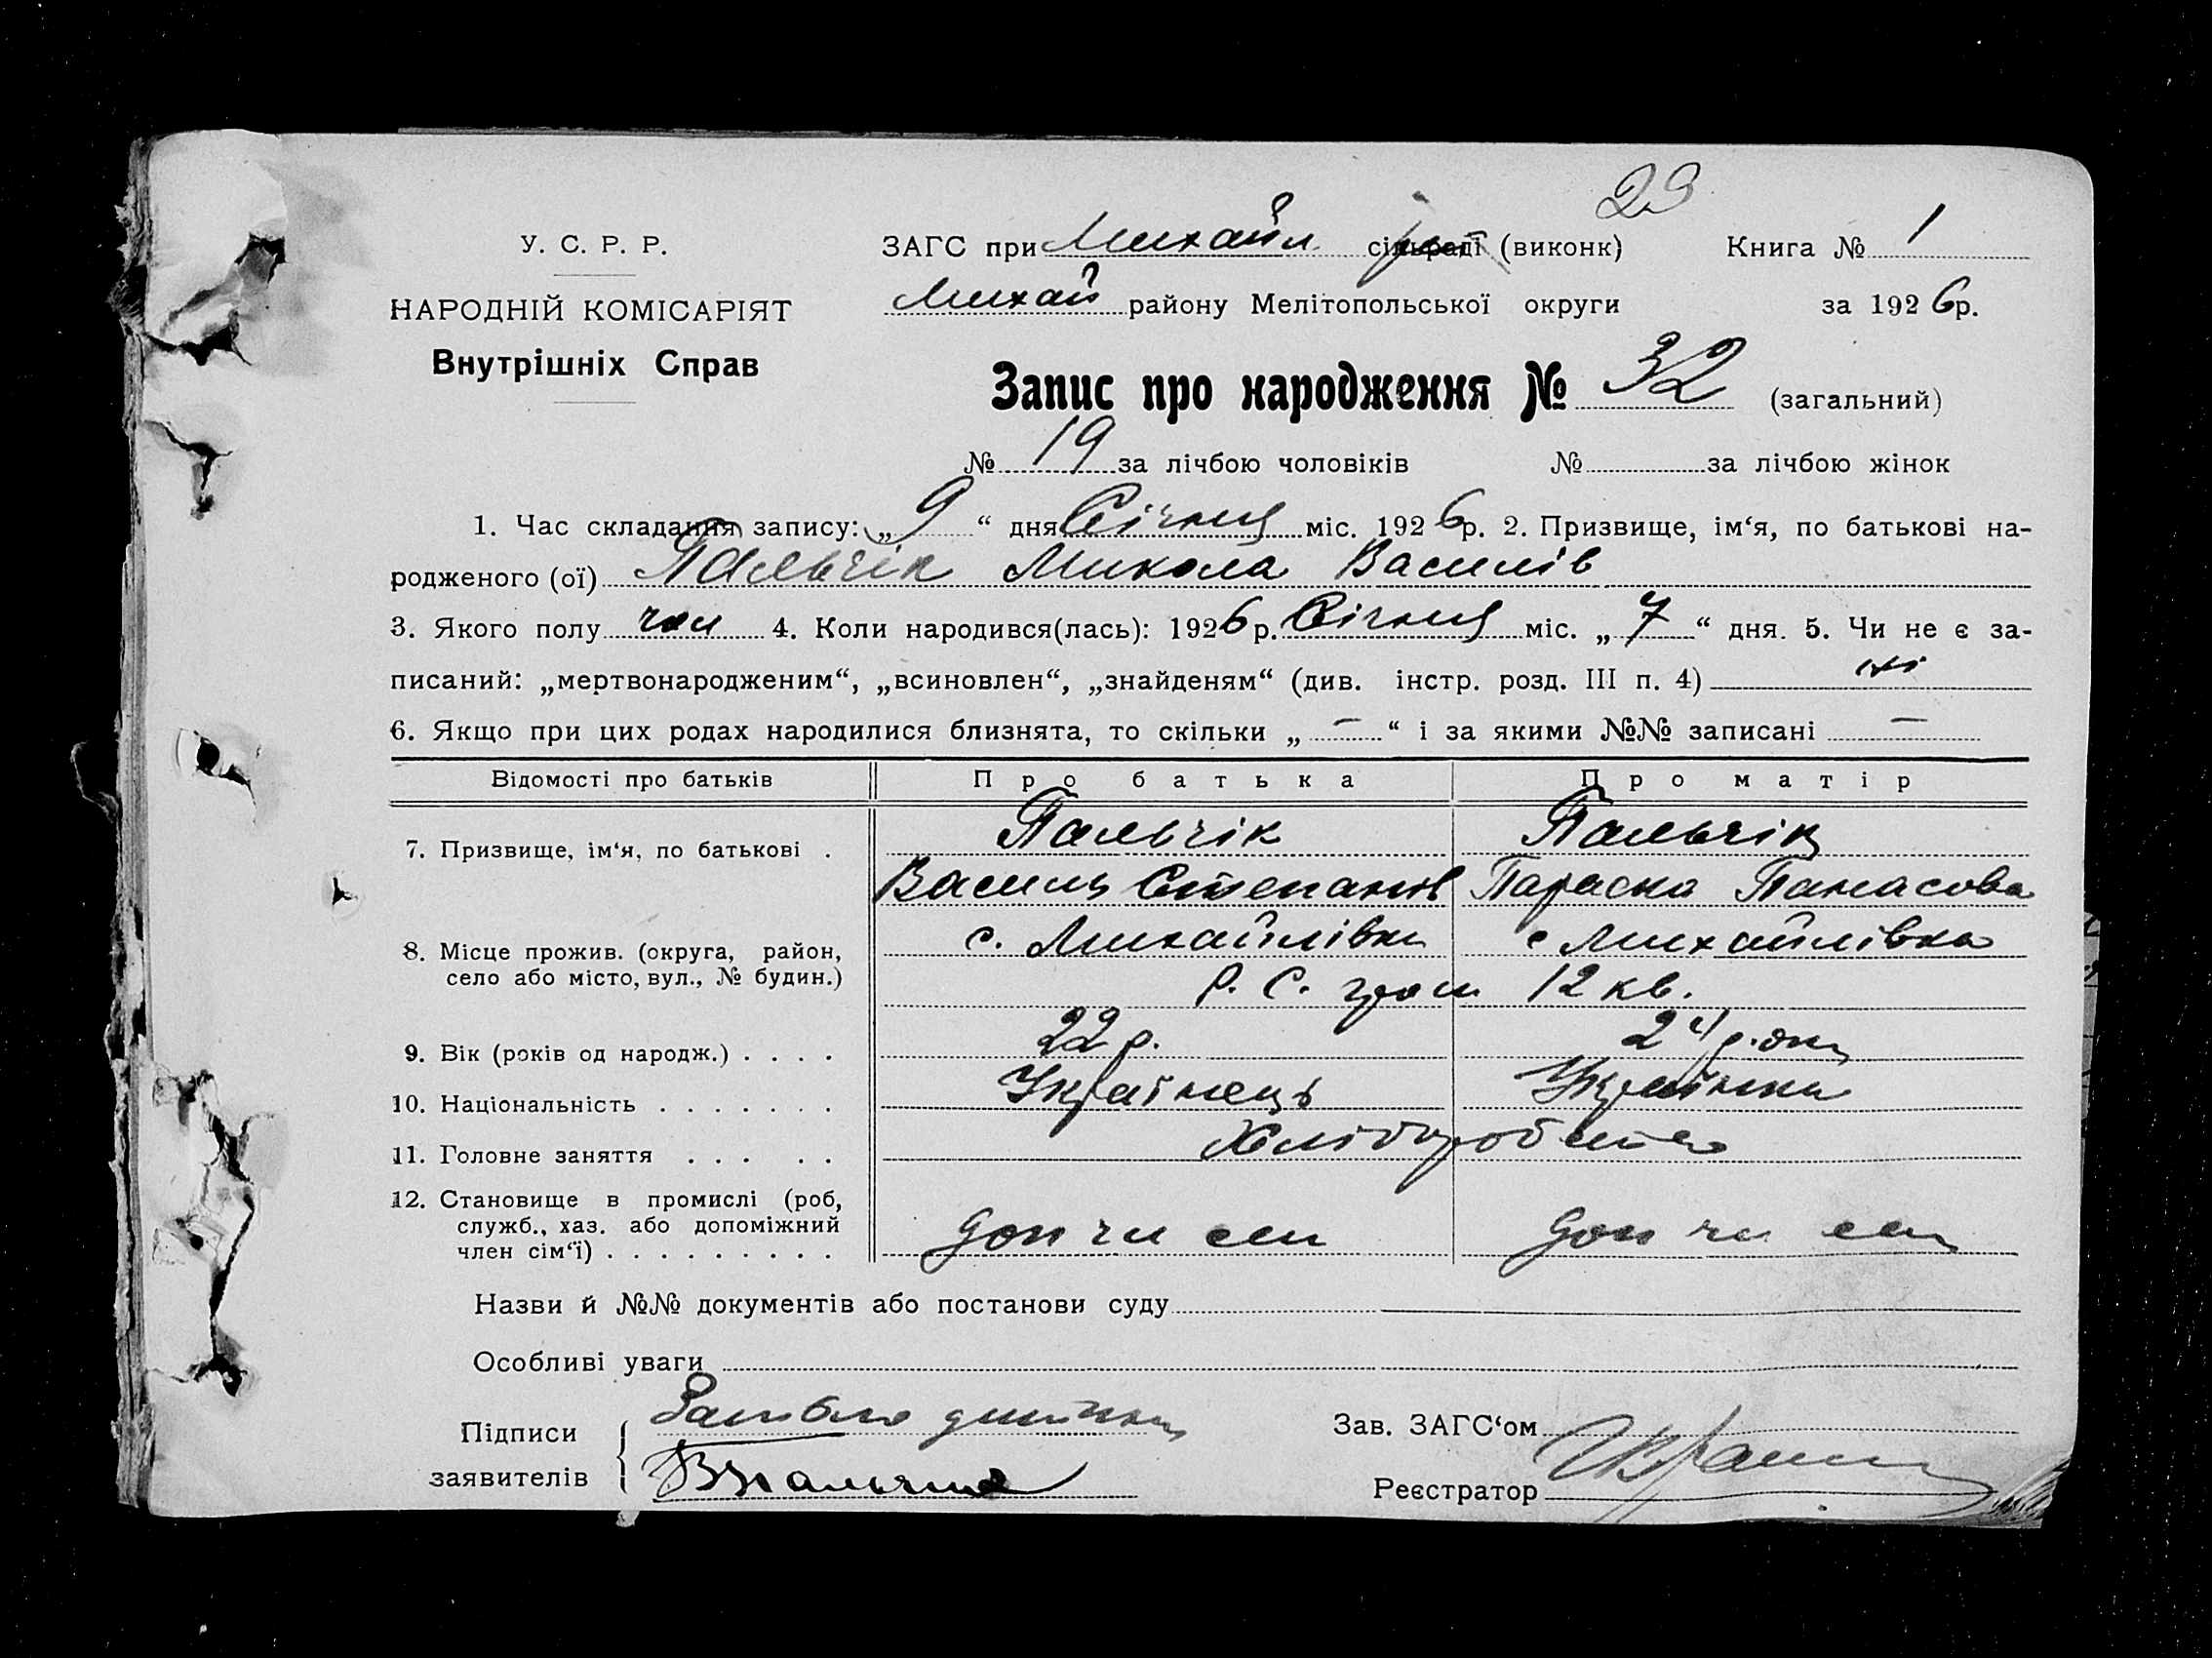 23
У. С. Р. Р.
ЗАГС при Михайл. сільраді (виконк) Книга № 1
НАРОДНІЙ КОМІСАРІЯТ
Михай району Мелітопольської округи за 1926р.
Внутрішніх Справ
Запис про народження № 32 (загальний)
№ 19 за лічбою чоловіків № за лічбою жінок
1. Час складання запису: „9“ дня Січня міс. 1926р. 2. Призвище, ім‘я, по батькові на-
родженого (ої) Пальчік Микола Василів
3. Якого полу чол 4. Коли народився(лась): 1926р. Січня міс. „7“ дня. 5. Чи не є за-
писаний: „мертвонародженим“, „всиновлен“, „знайденям“ (див. інстр. розд. III п. 4) ні
6. Якщо при цих родах народилися близнята, то скільки „—“ і за якими №№ записані —
Відомості про батьків Про батька Про матір
7. Призвище, ім‘я, по батькові . Пальчік Пальчік
Василь Степанів Параска Панасова
8. Місце прожив. (округа, район, с. Михайлівка с Михайлівка
село або місто, вул., № будин.) Р. С. гром 12 кв.
9. Вік (років од народж.) . . . . 22 р. 24 р.
10. Національність . . . . . . . Українець Українка
11. Головне заняття . . . . . Хліборобство
12. Становище в промислі (роб,
служб., хаз. або допоміжний
член сім‘ї) . . . . . . . . . доп чл сем доп чл сем
Назви й №№ документів або постанови суду
Особливі уваги
Підписи
заявителів
Зав. ЗАГС‘ом
Реєстратор